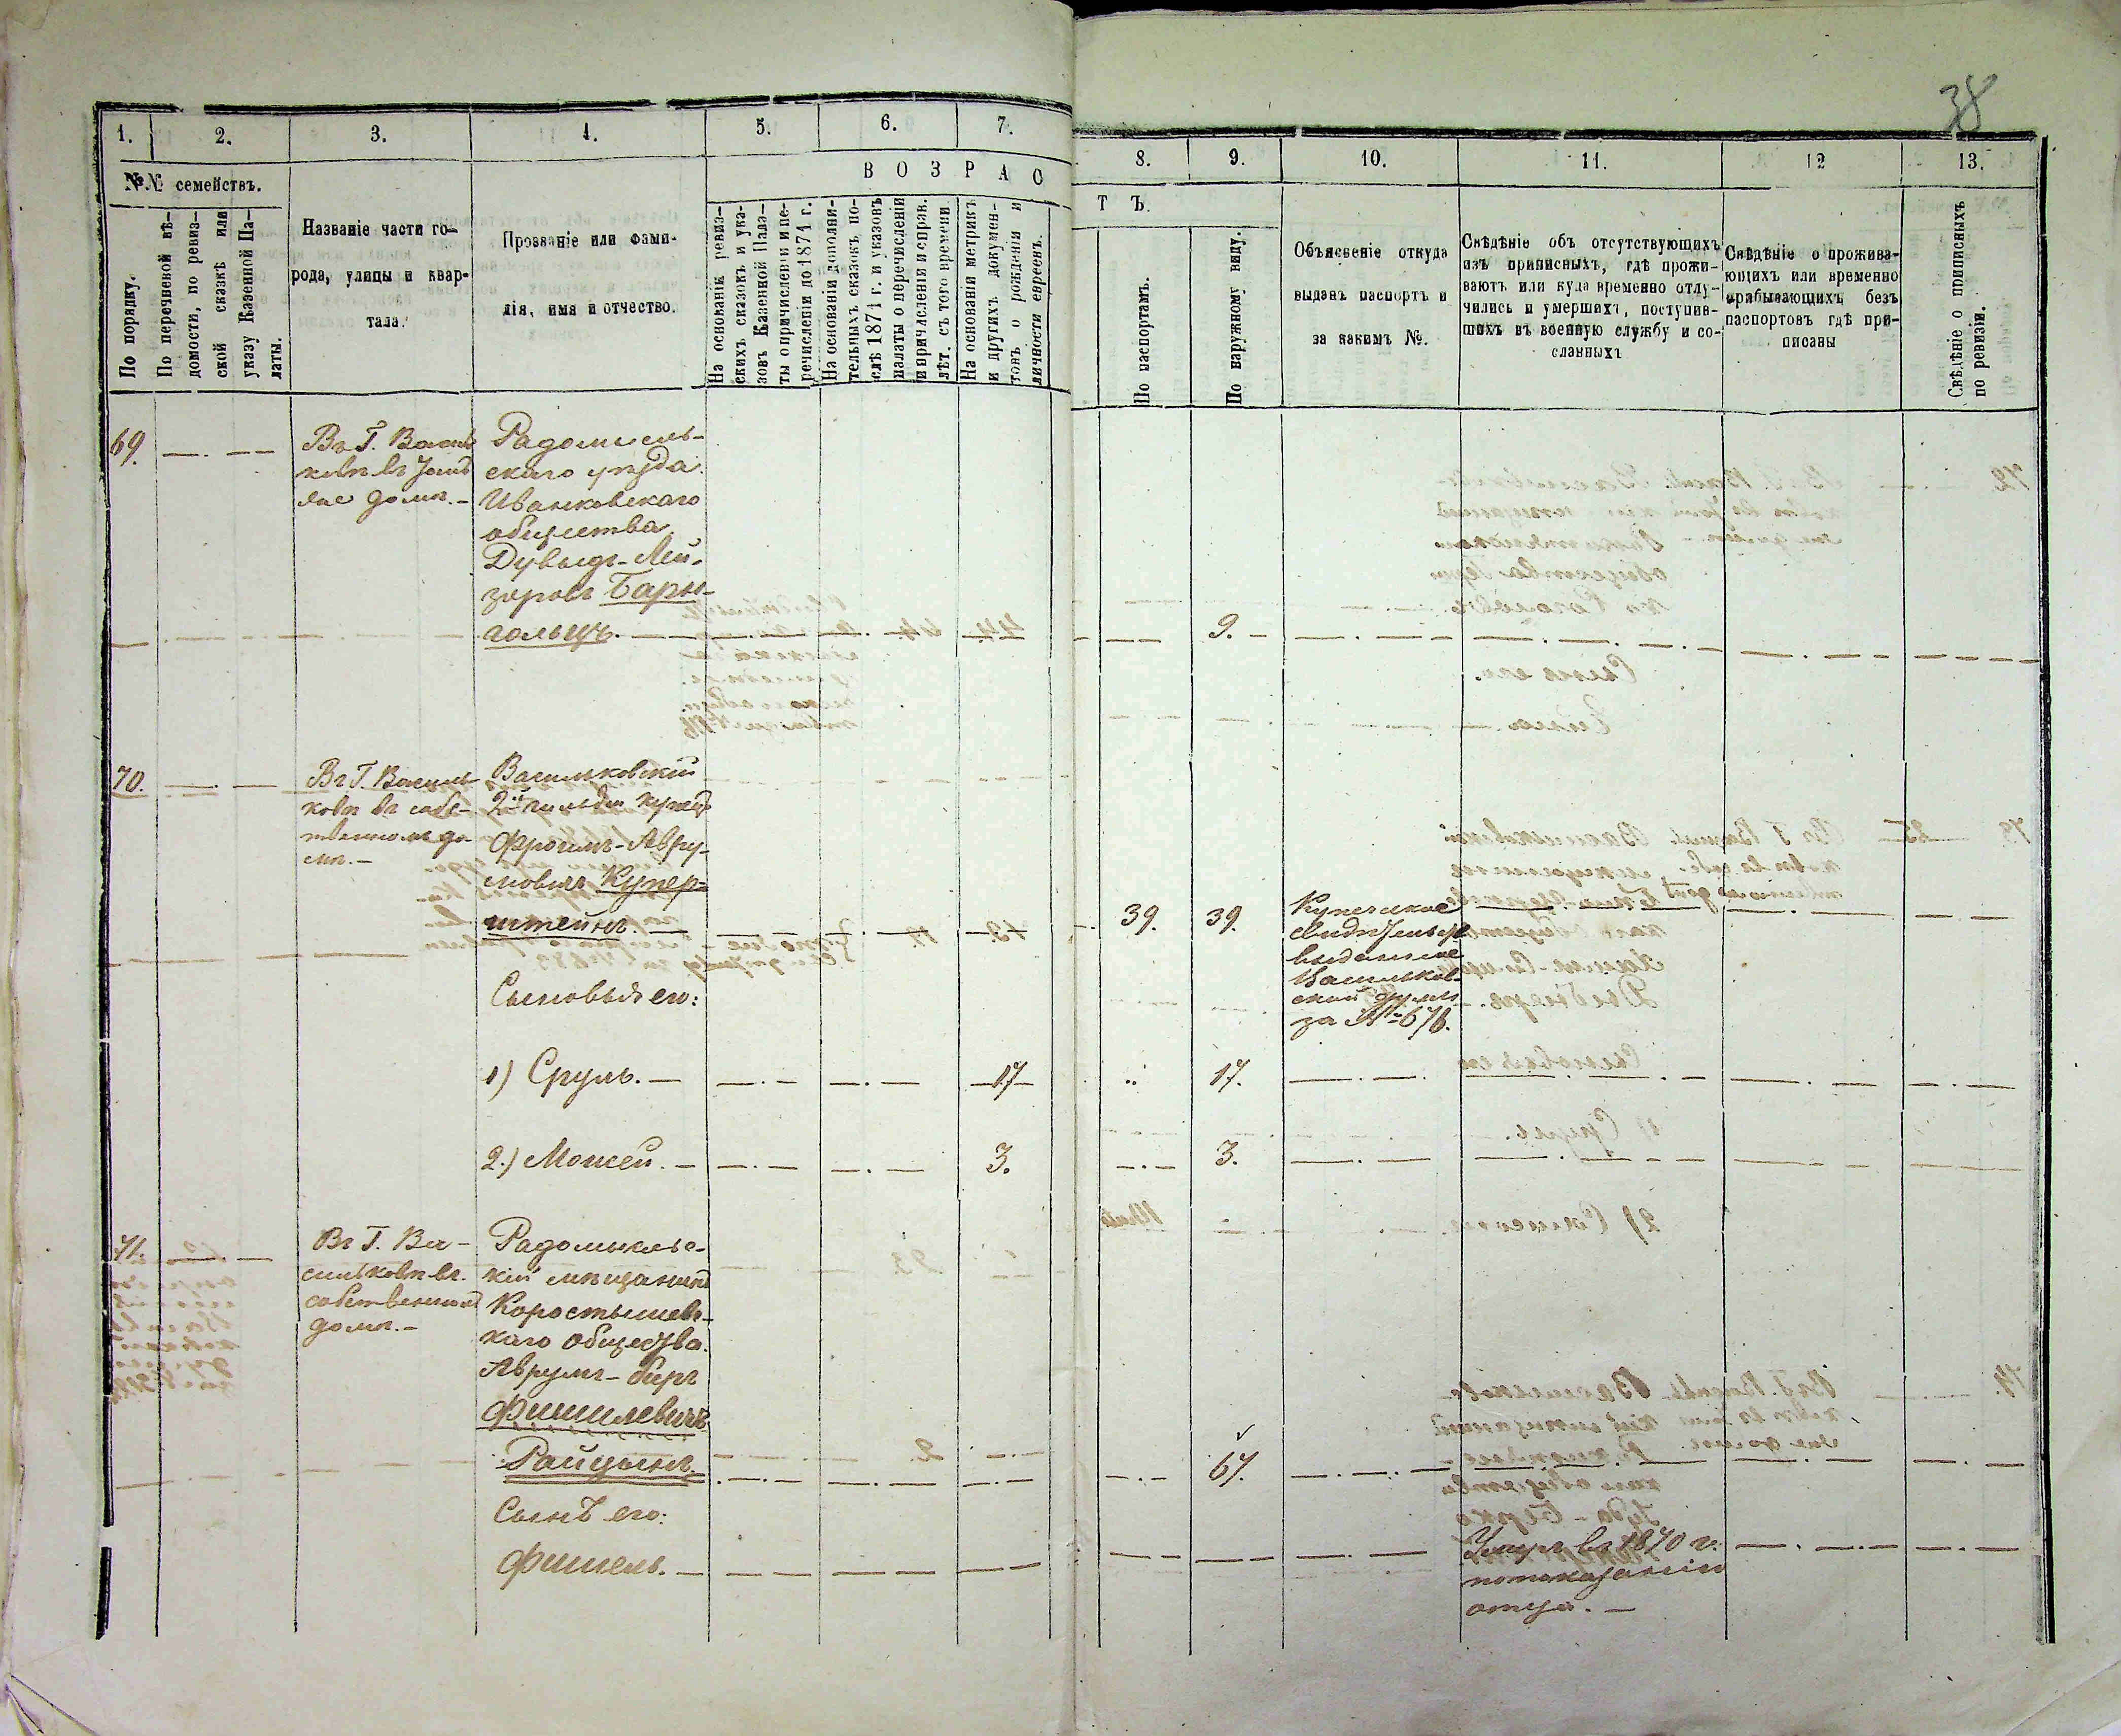 38
1. 2. 3. 4. 5. 6. 7. 8. 9. 10. 11. 12 13.
№№ семействъ.
По порядку.
По перечневой вѣ-
домости, по ревиз-
ской сказкѣ или
указу Казенной Па-
латы.
Названіе части го-
рода, улицы и квар-
тала.
Прозваніе или фами-
лія, имя и отчество.
ВОЗРАСТЪ.
На основаніи ревиз-
скихъ сказокъ и ука-
зовъ Казенной Пала-
ты о причисленіи и пе-
речисленіи до 1874 г.
На основаніи дополни-
тельныхъ сказокъ по-
слѣ 1874 г. и указовъ
палаты о перечисленіи
и причисленіи и справ.
лѣт. съ того времени
На основаніи метрикъ
и другихъ докумен-
товъ о рожденіи и
личности евреевъ.
По паспортамъ.
По наружному виду.
Объясненіе откуда
выданъ паспортъ и
за какимъ №.
Свѣдѣніе объ отсутствующихъ
изъ приписныхъ, гдѣ прожи-
ваютъ или куда временно отлу-
чились и умершихъ, поступив-
шихъ въ военную службу и со-
сланныхъ
Свѣдѣніе о прожива-
ющихъ или временно
прабывающихъ безъ
паспортовъ гдѣ при-
писаны
Свѣдѣніе о приписныхъ
по ревизіи.
69.
Въ Г. Василь
ковѣ въ
домѣ.
Радомысль-
скаго уѣзда
Иванковскаго
общества
Дувыдъ-Лей-
зоровъ Барн-
гольцъ.
9.
70.
Въ Г. Василь-
ковѣ въ собс-
твенномъ до-
мѣ.
Васильковскій
2й гильдіи купецъ
Фроимъ-Авру-
мовичъ Купер-
штейнъ.
39. 39.
Купеческое
свидѣтельст.
выданное
Васильков-
ской думы
за №676.
Сыновья его:
1) Сруль. 17 17.
2.) Мошей. 3. 3.
71.
Въ Г. Ва-
сильковѣ въ
собственномъ
домѣ.
Радомыслье-
кій мѣщанинъ
Коростышевс-
каго общества
Аврумъ-беръ
Фишилевичъ
Райцынъ.
67.
Сынъ его:
Фишель.
Умеръ въ 1870 г.
по показанію
отца.